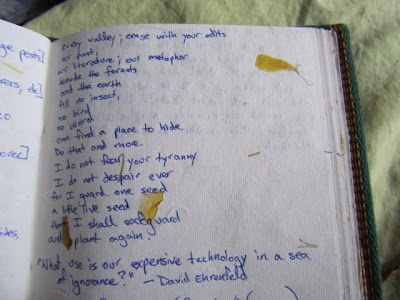 ge pests]
every valley; erase with your edits
our past,
our literature; our metaphor
denude the forests
and the earth
till no insect,
no bird
no word
can find a place to hide.
Do that and more.
I do not fear your tyranny
I do not despair ever
for I guard one seed
a little live seed
that I shall safeguard
and plant again."
"What use is our expensive technology in a sea
of ignorance?" – David Ehrenfeld